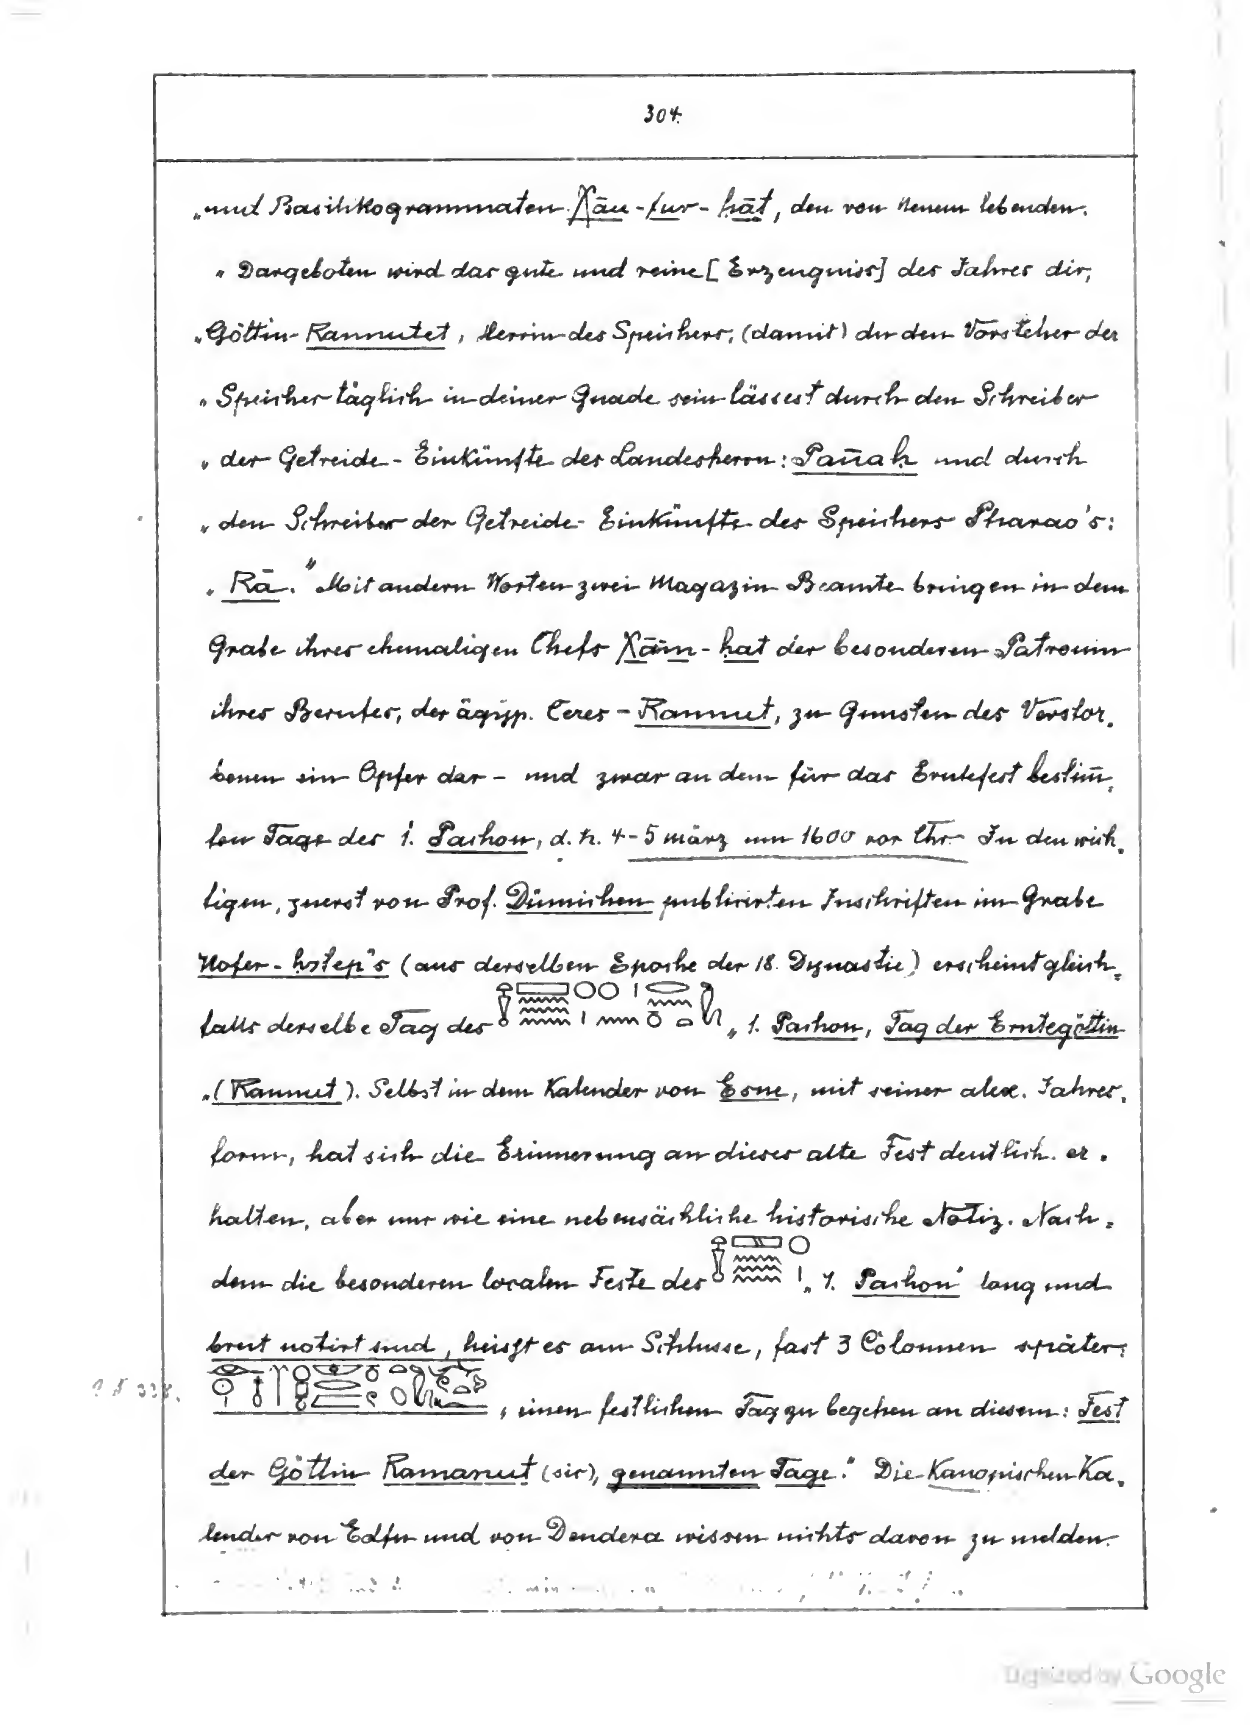 304.
„und Basilikogrammaten Xāu-fur-hāt, den von Neuem lebenden.
„Dargeboten wird das gute und reine [Erzeugniss] des Jahres dir,
„Göttin-Rannutet, Herrin des Speichers, (damit) du den Vorsteher der
„Speicher täglich in deiner Gnade sein lässest durch den Schreiber
„der Getreide-Einkünfte des Landesherrn: Pañah und durch
„den Schreiber der Getreide-Einkünfte des Speichers Pharao's:
„Rā." Mit andern Worten zwei Magazin Beamte bringen in dem
Grabe ihres ehemaligen Chefs Xām-hat der besonderen Patronin
ihres Berufes, der ägyp. Ceres-Rannut, zu Gunsten des Verstor„
benen ein Opfer dar – und zwar an dem für das Erntefest bestim̄„
ten Tage des 1. Pachon, d.h. 4-5 März um 1600 vor Chr. In den wich„
tigen, zuerst von Prof. Dümichen publicirten Inschriften im Grabe
Nofer-hotep's (aus derselben Epoche der 18. Dynastie) erscheint gleich„
falls derselbe Tag des „1. Pachon, Tag der Erntegöttin
„(Rannut). Selbst in dem Kalender von Esne, mit seiner alex. Jahres„
form, hat sich die Erinnerung an dieses alte Fest deutlich er„
halten, aber nur wie eine nebensächliche historische Notiz. Nach„
dem die besonderen localen Feste des „1. Pachon" lang und
breit notirt sind, heisst es am Schlusse, fast 3 Colomnen später:
„einen festlichen Tag zu begehen an diesem: Fest
der Göttin Ramanut (sic), genannten Tage." Die Kanopischen Ka„
lender von Edfu und von Dendera wissen nichts davon zu melden.
Digitized by Google